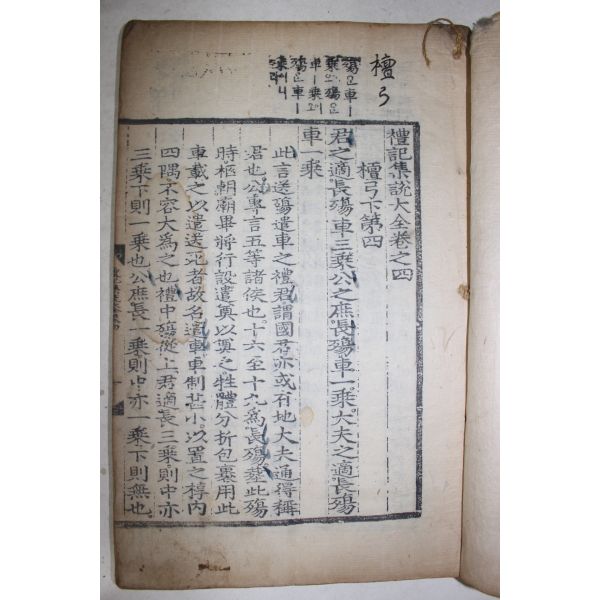 檀弓
殤은車一
車一乘
殤은車一
禮記集說大全卷之四
檀弓下第四
君之適長殤車三乘公之庶長殤車一乘大夫之適長殤
車一乘
此言送殤遣車之禮君謂國君亦或有地大夫通得稱
君也公專言五等諸侯也十六至十九爲長殤葬此殤
時柩朝廟畢將行設遣奠以奠之牲體分折包裹用此
車載之以遣送死者故名遣車車制甚小以置之椁内
四隅不容大爲之也禮中殤從上君適長三乘則中亦
三乘下則一乘也公庶長一乘則中亦一乘下則無也